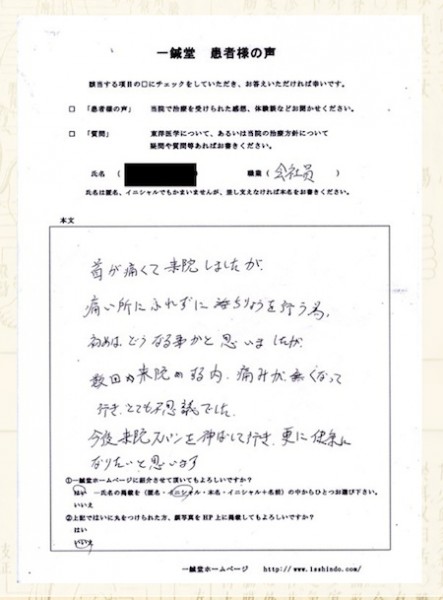 一鍼堂 患者様の声
該当する項目の□にチェックをしていただき、お答えいただければ幸いです。
□ 「患者様の声」 当院で治療を受けられた感想、体験談などお聞かせください。
□ 「質問」 東洋医学について、あるいは当院の治療方針について
疑問や質問等あればお書きください。
氏名 ( ) 職業 ( 会社員 )
氏名は匿名、イニシャルでもかまいませんが、差し支えなければ本名をお書きください。
本文
首が痛くて来院しましたが、
痛い所にふれずにちりょうを行う為、
初めは、どうなる事かと思いましたが、
数回来院する内、痛みが無くなって
行き、とても不思議でした。
今後来院スパンを伸ばして行き、更に健康に
なりたいと思います
①一鍼堂ホームページに紹介させて頂いてもよろしいですか？
はい －氏名の掲載を（匿名・イニシャル・本名・イニシャル＋名前）の中からひとつお選び下さい。
いいえ
②上記ではいに丸をつけられた方、顔写真をHP上に掲載してもよろしいですか？
はい
いいえ
一鍼堂ホームページ http://www.isshindo.com/